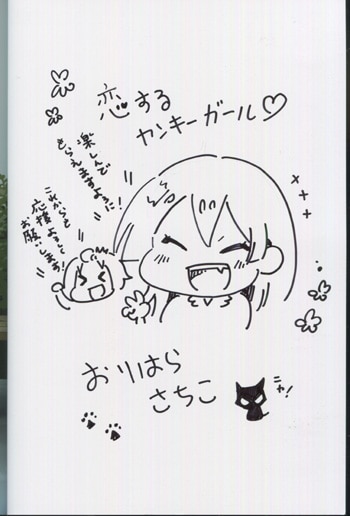 恋する
ヤンキーガール♡
楽しんで
もらえますように!
これからも
応援よろしく
お願いします!
おりはら
さちこ
ニャ!